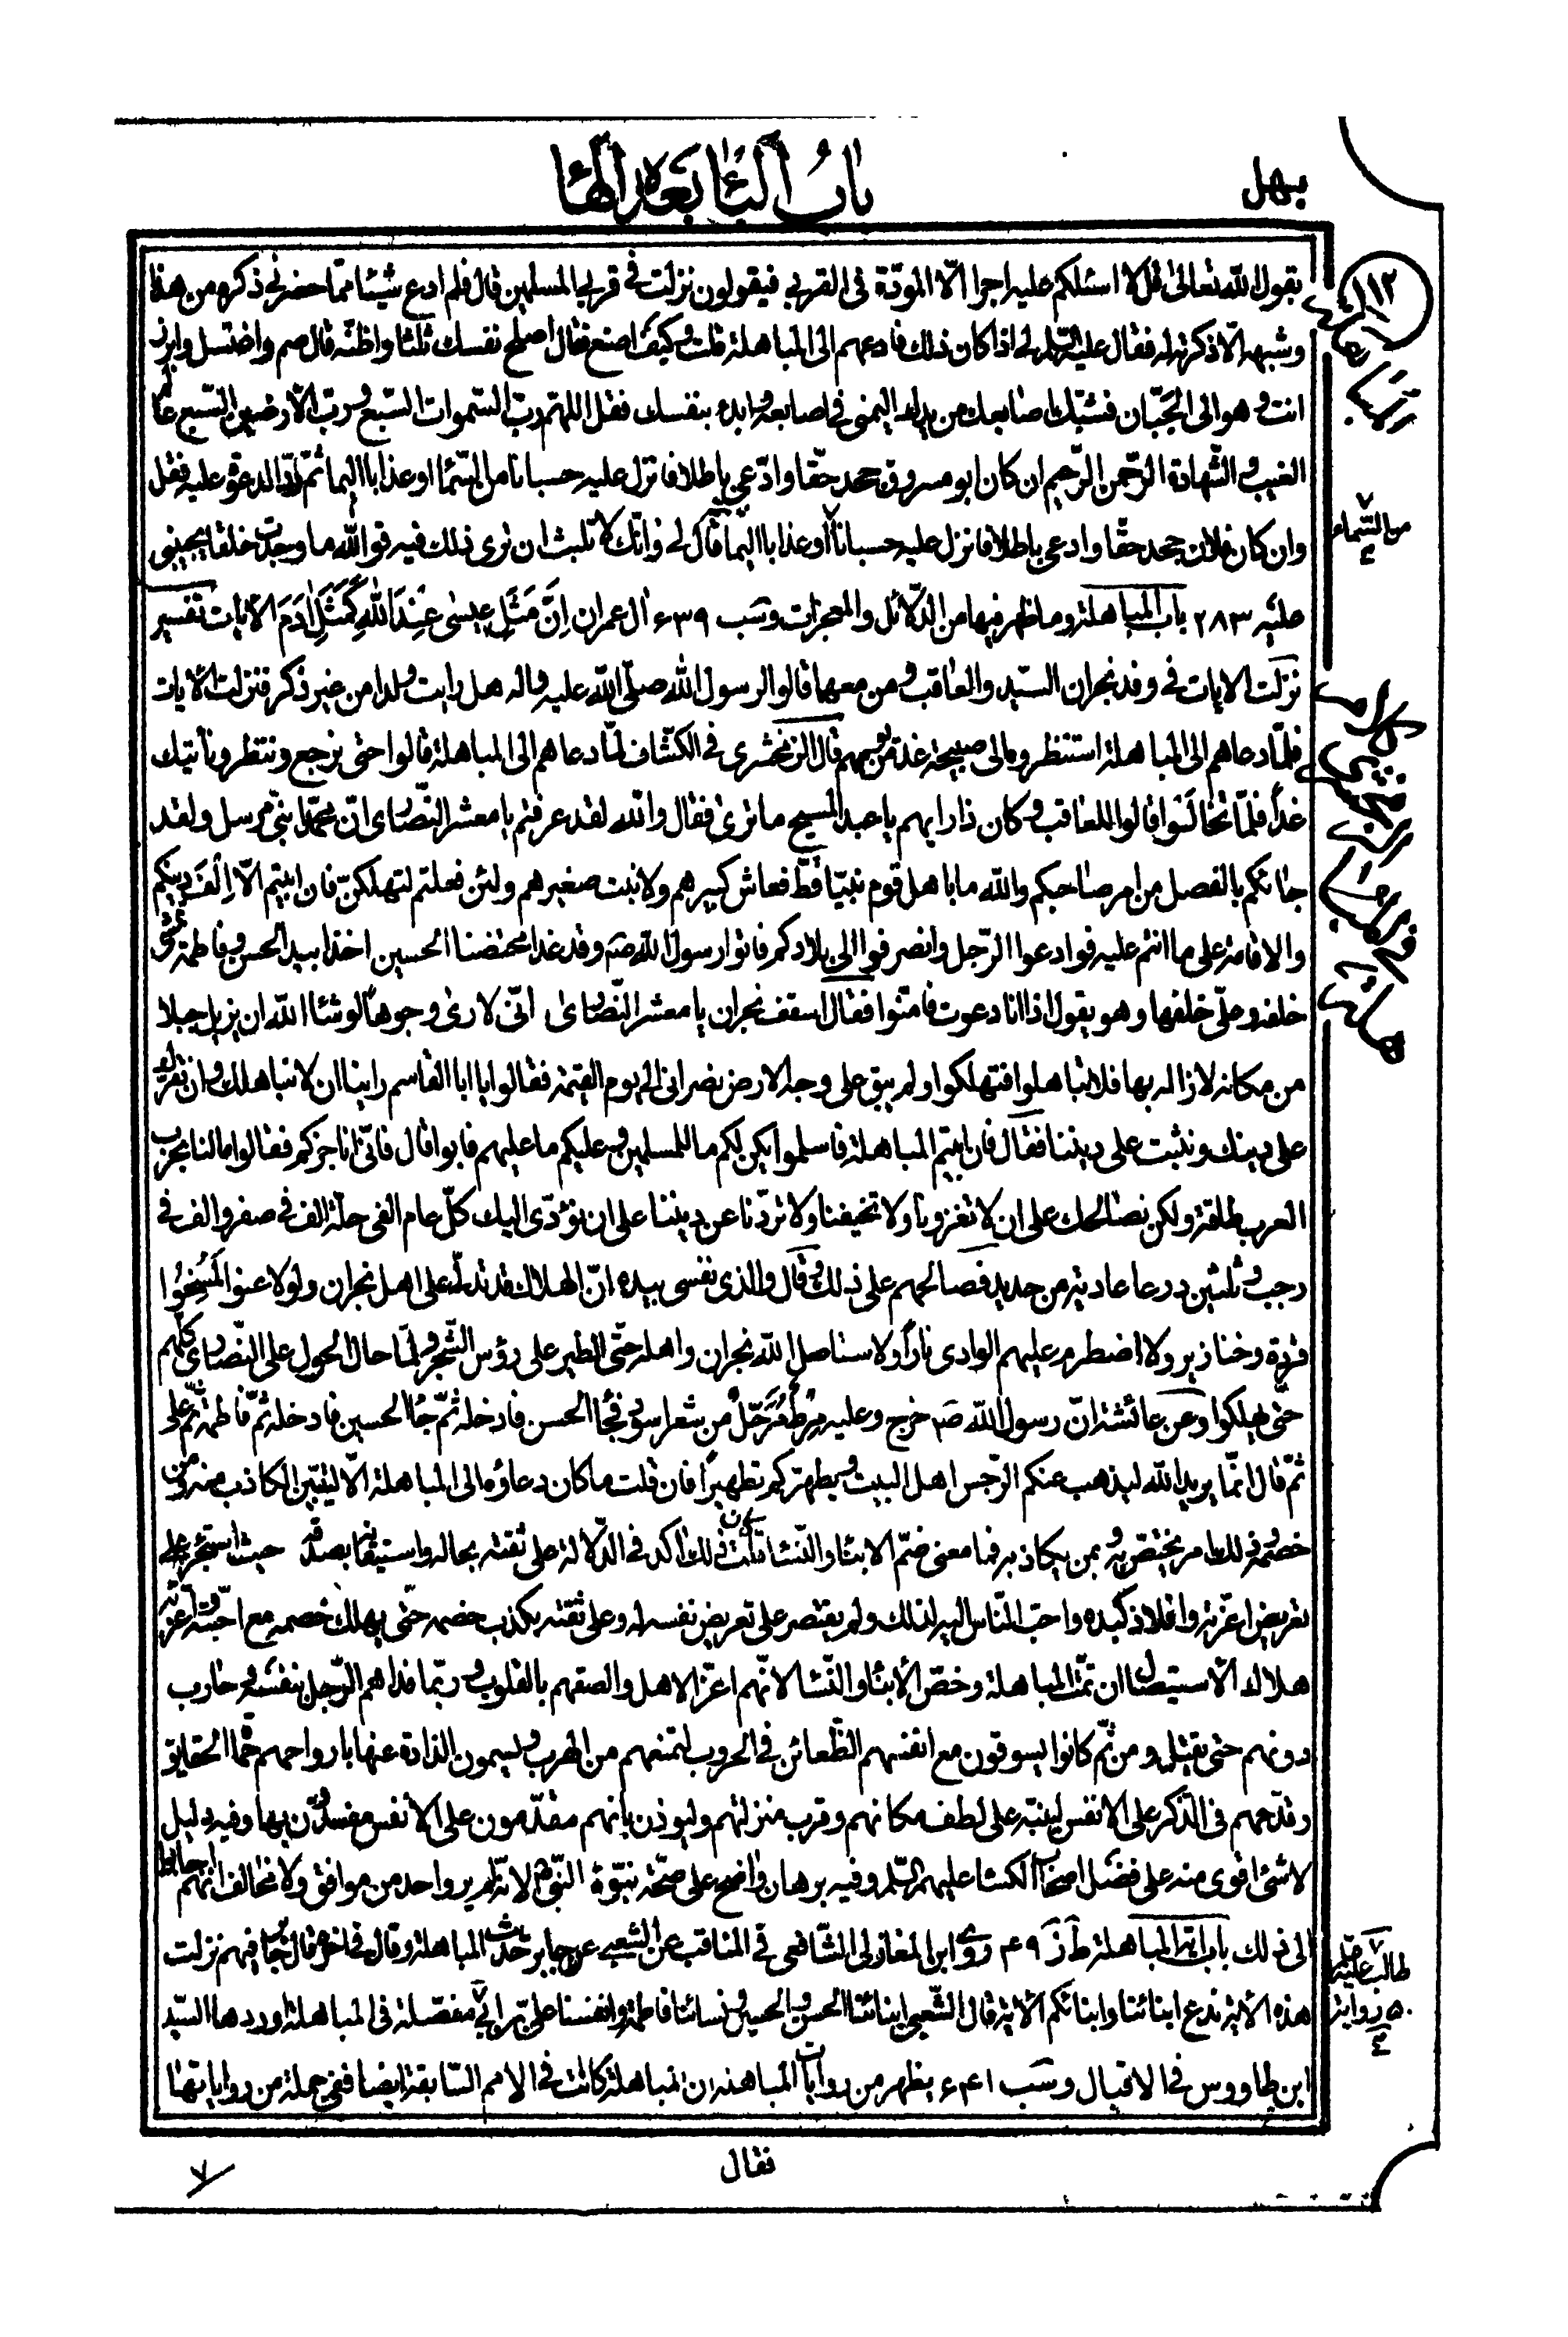 بهل
باب الباء بعده الهاء
١١٢
يقول الله تعالى قل لا اسئلكم عليه اجرا الّا المودّة فى القربى فيقولون نزلت فى قربى المسلمين قال فلم ادع شيئا ممّا حضرنى ذكره من هذا
وشبهه الّا ذكرته له فقال عليه السّلم لى اذا كان ذلك فادعهم الى المباهلة قلت وكيف اصنع فقال اصلح نفسك ثلثا واظنّه قال صم واغتسل وابرز
انت وهو الى الجبّان فشبّك اصابعك من يدك اليمنى فى اصابعه وابدء بنفسك فقل اللهم ربّ السّموات السّبع وربّ الارضين السّبع عالم
الغيب والشّهادة الرّحمن الرّحيم ان كان ابو مسروق جحد حقّا وادّعى باطلا فانزل عليه حسبانا من السّماء او عذابا اليما ثمّ ردّ الدعوة عليه فقل
وان كان فلان جحد حقّا وادعى باطلا فانزل عليه حسبانا او عذابا اليما ثمّ قال لى فانّك لا تلبث ان ترى ذلك فيه فوالله ما وجدت خلقا يجيبنى
من السّماء
عليه ٢٨٣ باب المباهلة وما ظهر فيها من الدّلائل والمعجزات وسب ٦٣٩ ال عمران اِنَّ مَثَلَ عيسى عِنْدَ اللهِ كَمَثَلِ ادَمَ الايات تفسير
نزلت الايات فى وفد نجران السّيد والعاقب ومن معهما قالوا لرسول الله صلّى الله عليه واله هل رايت ولدا من غير ذكر فنزلت الايات
فلمّا دعاهم الى المباهلة استنظروه الى صبيحة غد من يومهم قال الزمخشرى فى الكشّاف لمّا دعاهم الى المباهلة قالوا حتى نرجع وننظر ونأتيك
غدا فلمّا تخالَوا قالوا للعاقب وكان ذا رايهم يا عبد المسيح ما ترى فقال والله لقد عرفتم يا معشر النّصارى انّ محمّدا نبىّ مرسل ولقد
جائكم بالفصل من امر صاحبكم والله ما باهل قوم نبيّا قطّ فعاش كبيرهم ولا نبت صغيرهم ولئن فعلتم لتهلكنّ فان ابيتم الّا اِلْفَ دينكم
والاقامة على ما انتم عليه فوادعوا الرّجل وانصرفوا الى بلادكم فاتوا رسول الله ص وقد غدا محتضنا الحسين اخذا بيد الحسن وفاطمة تمشى
خلفه وعلىّ خلفها وهو يقول اذا انا دعوت فامّنوا فقال اسقف نجران يا معشر النّصارى انّى لارى وجوها لو شاء الله ان يزيل جبلا
من مكانه لازاله بها فلا تباهلوا فتهلكوا ولم يبق على وجه الارض نصرانى الى يوم القيمة فقالوا يا ابا القاسم راينا ان لا نباهلك وان نقرّك
على دينك ونثبت على ديننا فقال فان ابيتم المباهلة فاسلموا يكن لكم ما للمسلمين وعليكم ما عليهم فابوا قال فانّى اناجزكم فقالوا ما لنا بحرب
العرب طاقة ولكن نصالحك على ان لا تغزونا ولا تخيفنا ولا تردّنا عن ديننا على ان نؤدّى اليك كلّ عام الفى حلّة الف فى صفر والف فى
رجب وثلثين درعا عادية من حديد فصالحهم على ذلك وقال والذى نفسى بيده انّ الهلاك قد تدلّى على اهل نجران ولو لاعنوا لمُسِخُوا
قردة وخنازير ولاضطرم عليهم الوادى نارا ولاستاصل الله نجران واهله حتّى الطير على رؤس الشّجر ولمّا حال الحول على النّصارى كلّهم
حتّى يهلكوا وعن عائشة انّ رسول الله ص خرج وعليه مِرْط مُرَحَّلٌ من شعر اسود فجاء الحسن فادخله ثمّ جاء الحسين فادخله ثمّ فاطمة ثمّ علىّ
ثمّ قال انّما يريد الله ليذهب عنكم الرّجس اهل البيت ويطهّركم تطهيرا فان قلت ما كان دعاؤه الى المباهلة الّا ليتبيّن الكاذب منه ومن
خصمه وذلك امر يختصّ به وبمن يكاذبه فما معنى ضمّ الابناء والنّساء قلت ذلك اكد فى الدّلالة على ثقته بحاله واستيقانه بصدقه حيث استجرء على
تعريض اعزّته وافلاذ كبده واحبّ النّاس اليه لذلك ولم يقتصر على تعريض نفسه له وعلى ثقته بكذب خصمه حتّى يهلك خصمه مع احبّته واعزّته
هلاك الاستيصال ان تمّت المباهلة وخصّ الأبناء والنّساء لانّهم اعزّ الاهل والصقهم بالقلوب وربّما فداهم الرّجل بنفسه وحارب
دونهم حتى يقتل ومن ثمّ كانوا يسوقون مع انفسهم الظّعائن فى الحروب لتمنعهم من الهرب ويسمون الذادة عنها بارواحهم حماة الحقايق
وقدّمهم فى الذكر على الانفس لينبّه على لطف مكانهم وقرب منزلتهم وليوذن بانهم مقدّمون على الانفس مفدون بها وفيه دليل
لا شئ اقوى منه على فضل اصحاب الكساء عليهم السّلم وفيه برهان واضح على صحّة نبوّة النّبى لانّه لم يرو احد من موافق ولا مخالف انهم اجابوا
الى ذلك باب اية المباهلة ط ز ٤٩ روى ابن المغازلى الشّافعى فى المناقب عن الشعبى عن جابر حديث المباهلة وقال فى اخره قال جابر فيهم نزلت
هذه الأية ندع ابنائنا وابنائكم الأية قال الشّعبى ابنائنا الحسن والحسين ونسائنا فاطمة وانفسنا علىّ بن ابى مفصّلة فى المباهلة اوردها السّيد
طالب عليهما السلم
رواية
ابن طاووس فى الاقبال وسب ٦٤١ يظهر من روايات المباهلة ان المباهلة كانت فى الامم السّابقة ايضا ففى جملة من رواياتها
فقال